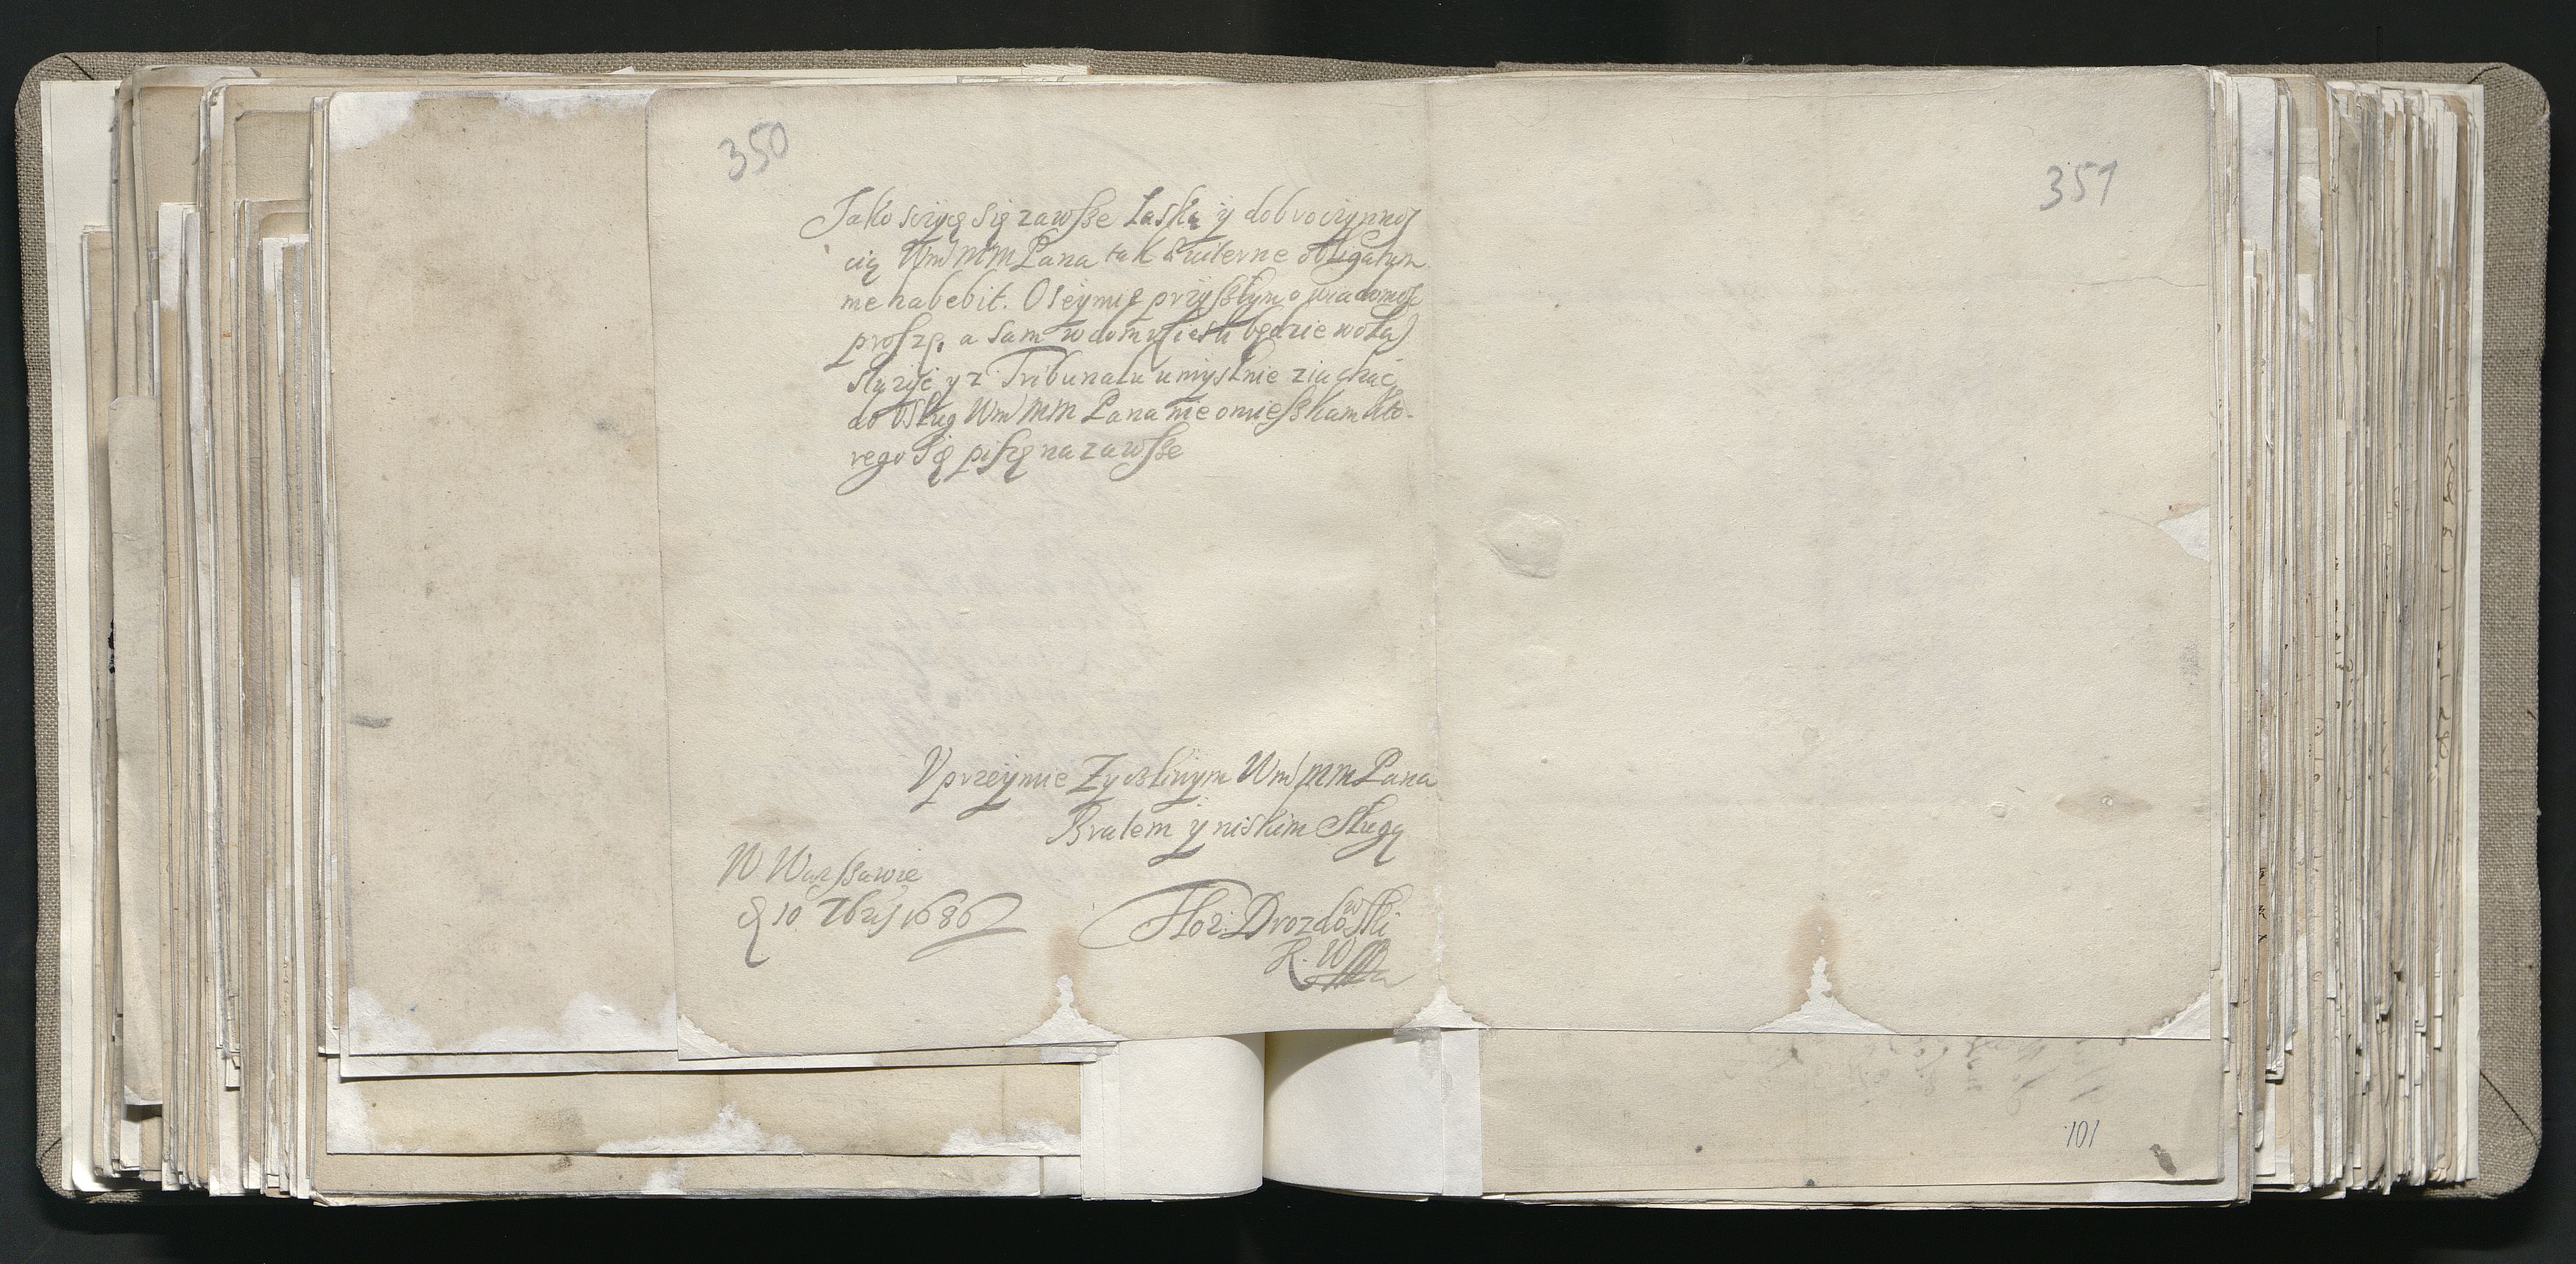 350
Jako sczycę się zawsße Łaską ÿ dobroczynnos
cią Wm MM Pana tak aeuiterne obligatum
me habebit. O Seÿmie przÿsßłÿm o wiadomosc
proszę, a sam w domu (iesli będzie wola)
słuzÿc y z Tribunału umÿslnie ziachac
do Vsług Wm MM Pana nie omiesßkam kto-
rego Się piszę na zawsße
Vprzeÿmie Zyczliwym Wm MM Pana
Bratem ÿ niskim Sługą
W Warsßawie
d 10 7bris 1686
Flor: Drozdowski
P. W
351
101